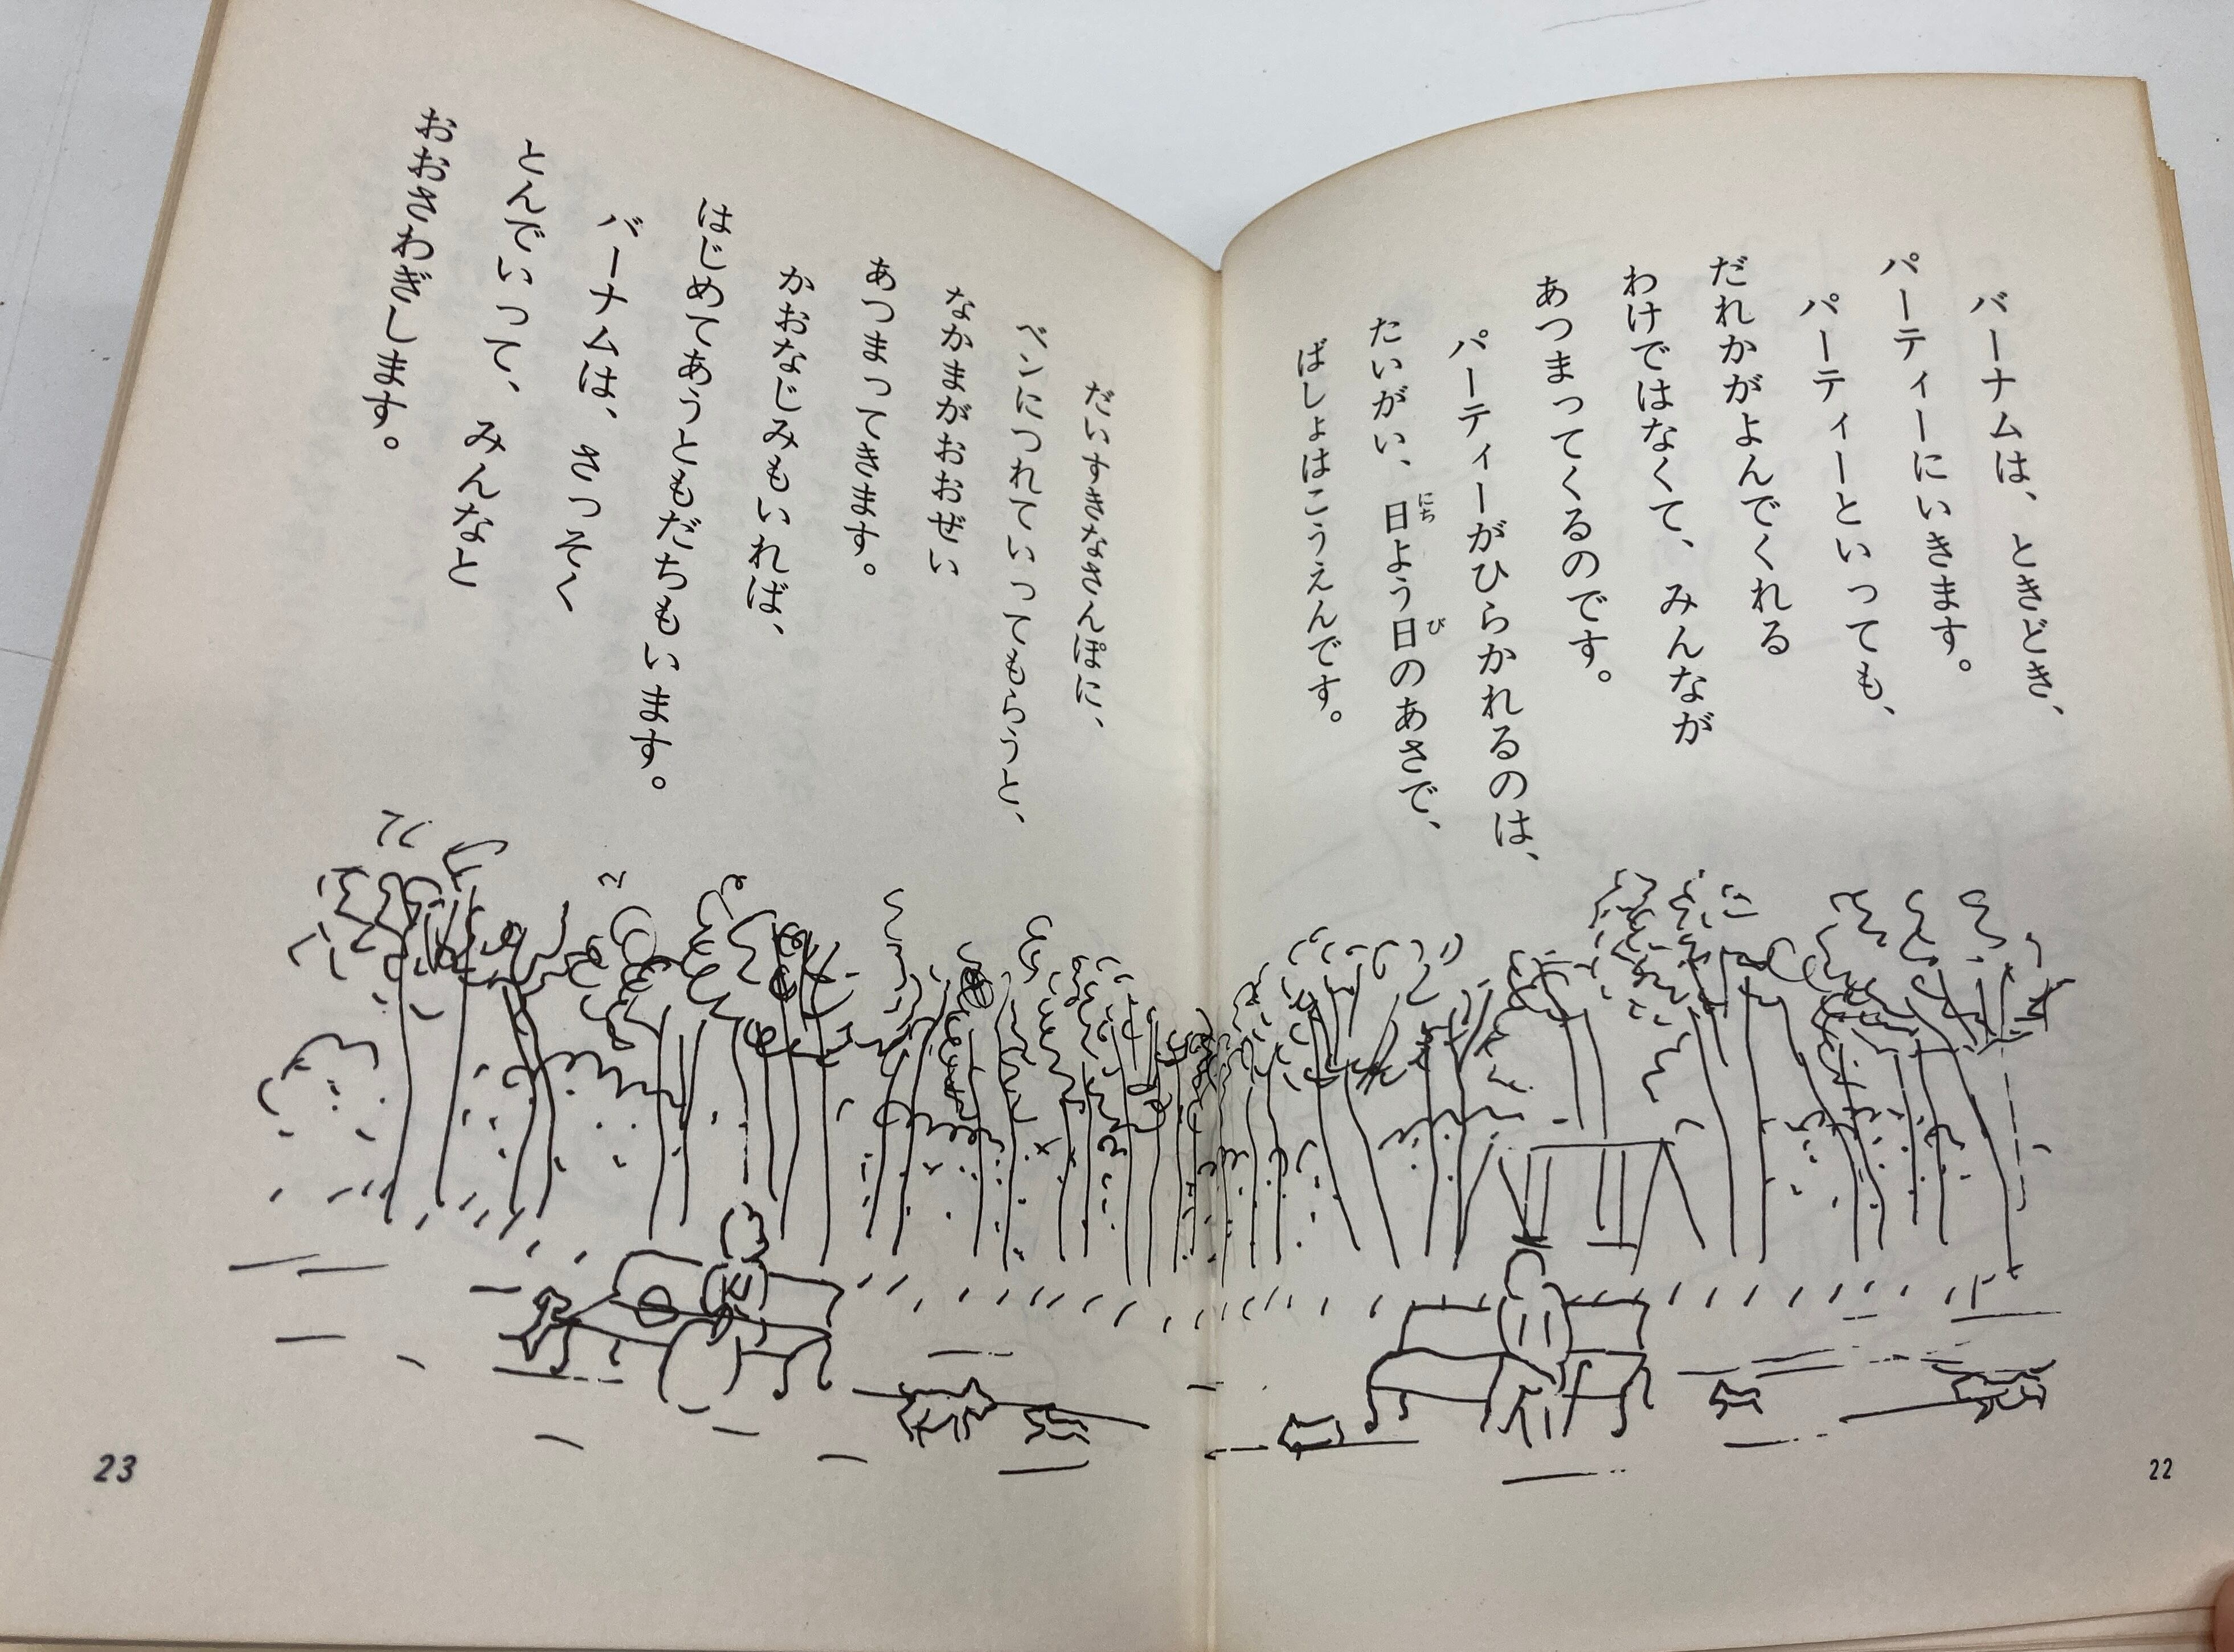 バーナムは、ときどき、
パーティーにいきます。
パーティーといっても、
だれかがよんでくれる
わけではなくて、みんなが
あつまってくるのです。
パーティーがひらかれるのは、
たいがい、日よう日のあさで、
にち
び
ばしょはこうえんです。
22
だいすきなさんぽに、
ベンにつれていってもらうと、
なかまがおおぜい
あつまってきます。
かおなじみもいれば、
はじめてあうともだちもいます。
バーナムは、さっそく
とんでいって、みんなと
おおさわぎします。
23